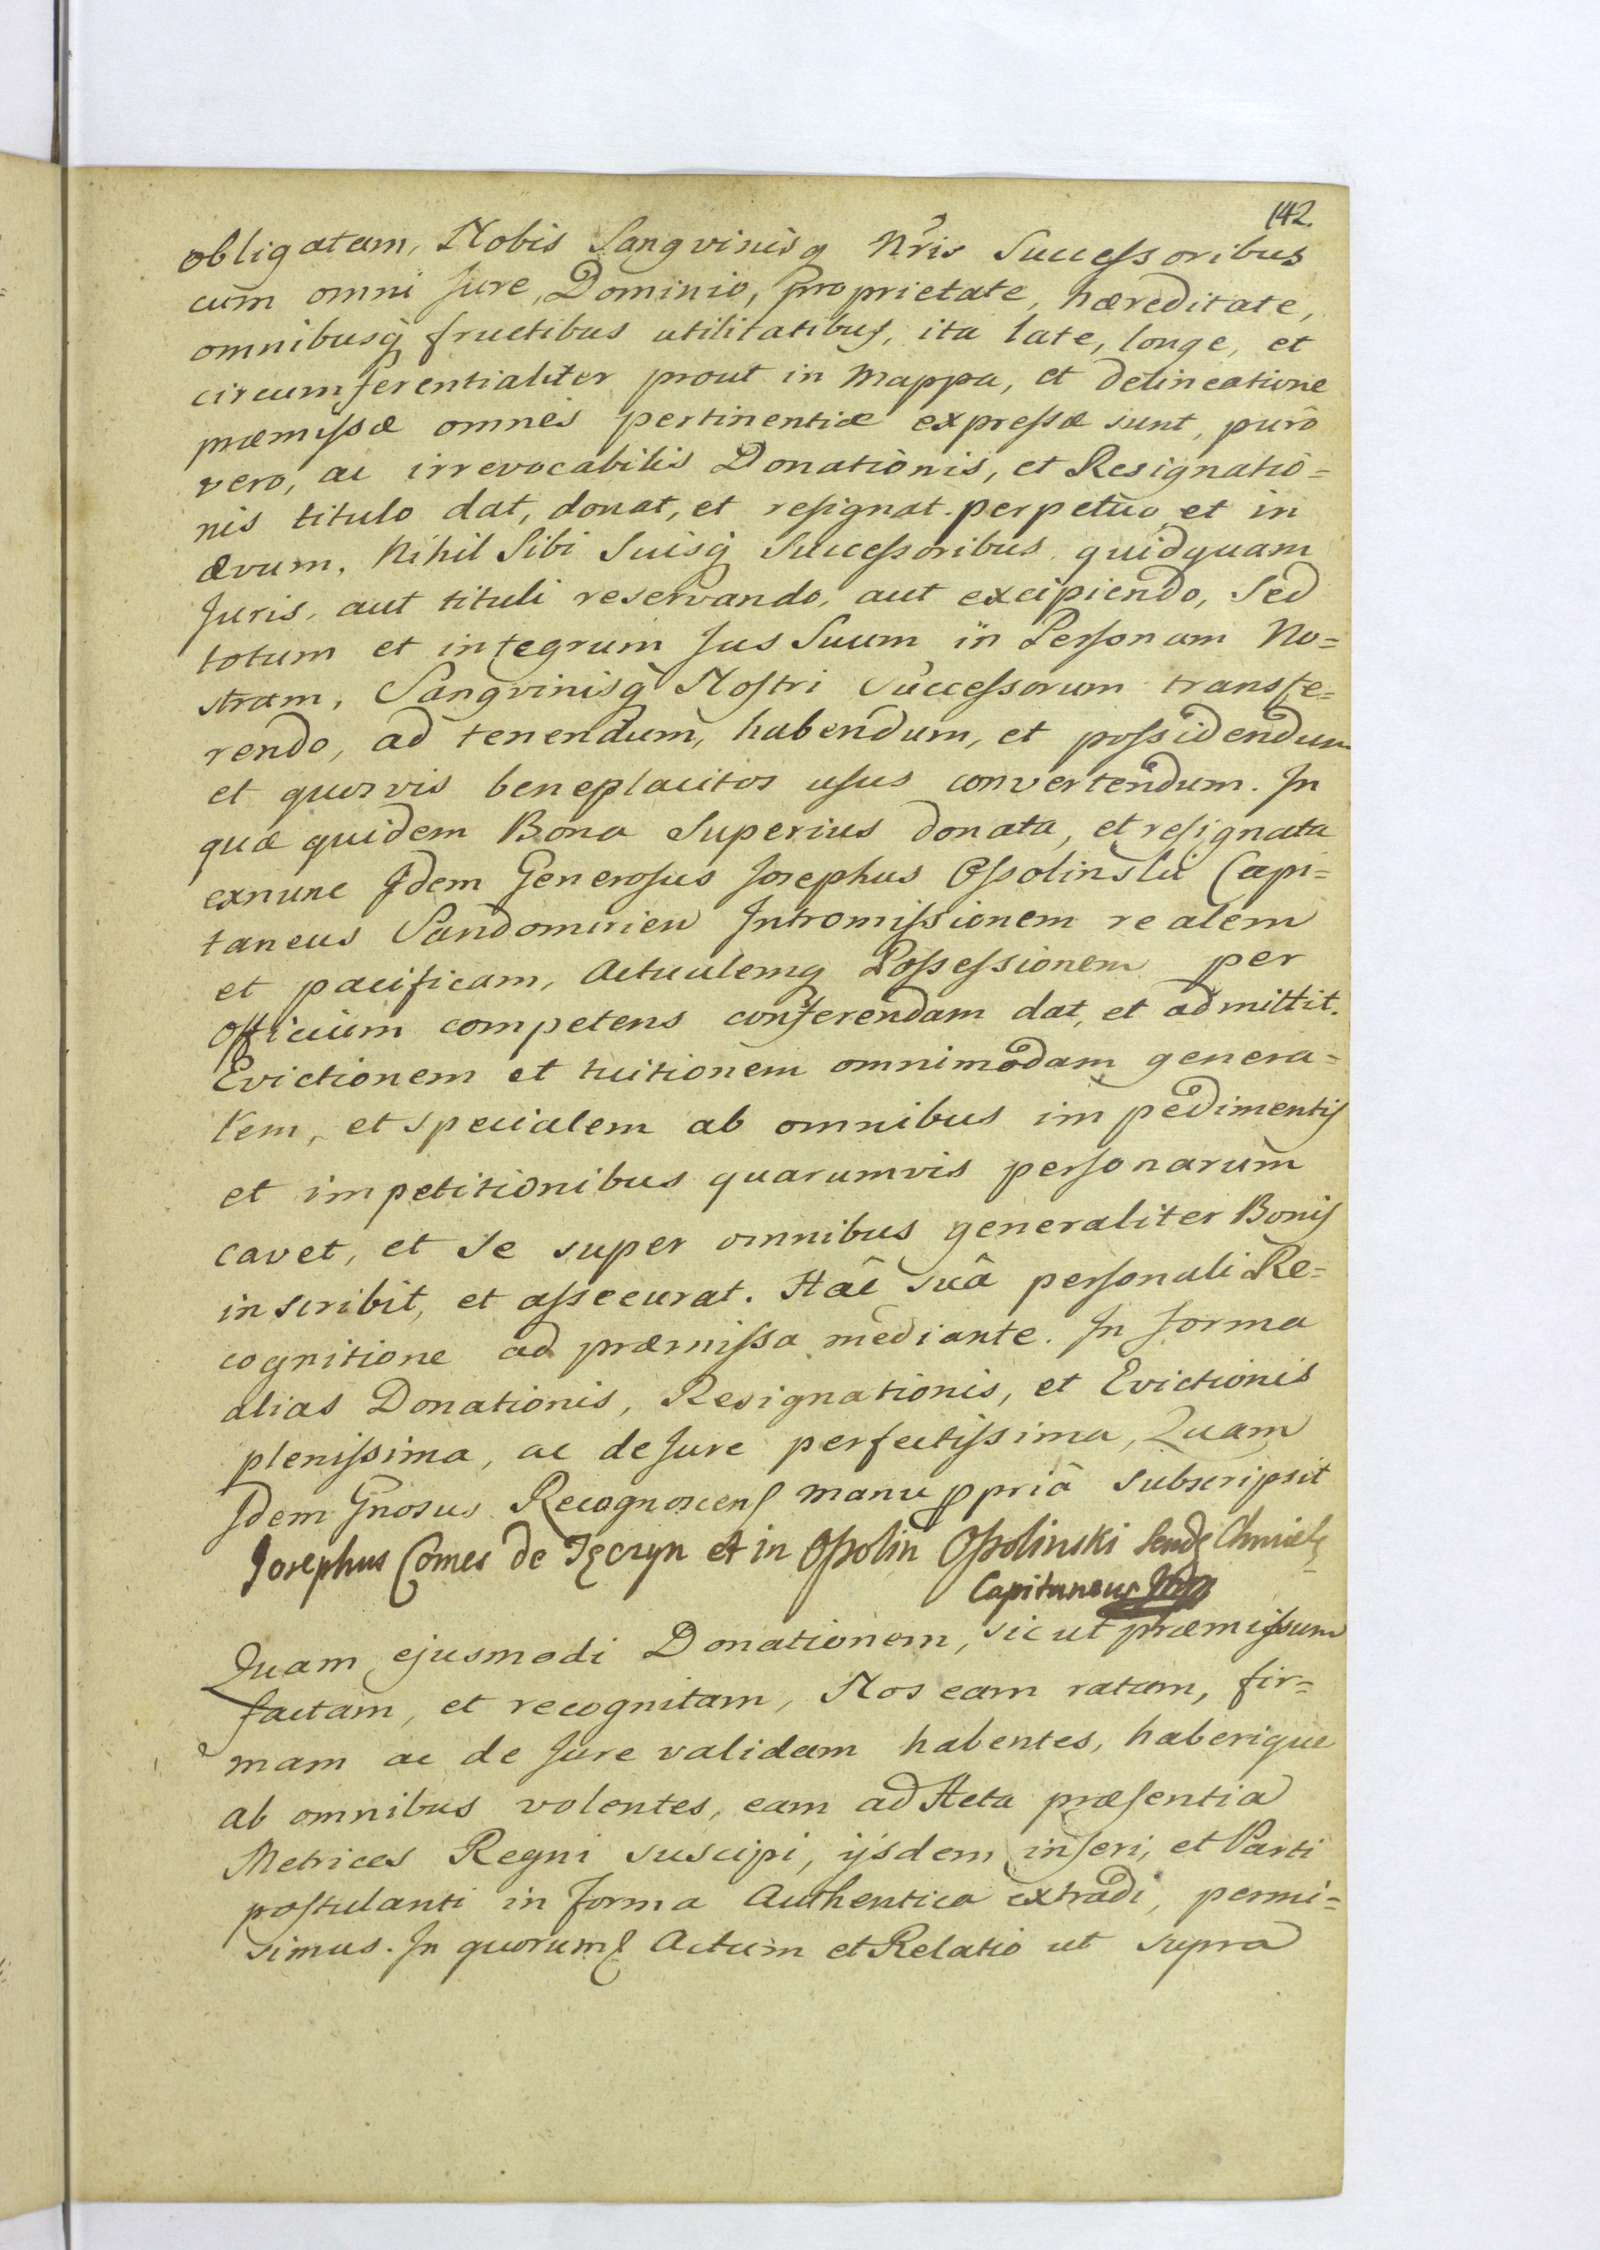 142.
obligatam, Nobis Sangvinisq Nris Successoribus
cum omni Jure, Dominio, proprietate, hæreditate,
omnibusq fructibus utilitatibus, ita late, longe, et
circumferentialiter prout in Mappa, et delineatione
præmissæ omnes pertinentiæ expressæ sunt, puro
vero, ac irrevocabilis Donationis, et Resignatio=
nis titulo dat, donat, et resignat perpetuo et in
ævum, Nihil Sibi Suisq Successoribus quidquam
Juris, aut tituli reservando, aut excipiendo, Sed
totum et integrum Jus Suum in Personam No=
stram, Sangvinisq Nostri Successorum transfe=
rendo, ad tenendum, habendum, et possidendum
et quosvis beneplacitos usus convertendum. In
quæ quidem Bona Superius donata, et resignata
exnunc Idem Generosus Josephus Ossolinski Capi=
taneus Sandomirien Intromissionem realem
et pacificam, Actualemq Possessionem per
Officium competens conferendam dat, et admittit.
Evictionem et tuitionem omnimodam genera=
lem, et specialem ab omnibus impedimentis
et impetitionibus quarumvis personarum
cavet, et Se super omnibus generaliter Bonis
inscribit, et assecurat. Hâc suâ personali Re=
cognitione ad præmissa mediante. In Forma
alias Donationis, Resignationis, et Evictionis
plenissima, ac de Jure perfectissima, Quam
Idem Gnosus Recognoscens manu ppriâ subscripsit
Josephus Comes de Tęczyn et in Ossolin Ossolinski Send Chmiel
Capitaneus
Quam ejusmodi Donationem, sic ut præmissum
factam, et recognitam, Nos eam ratam, fir=
mam ac de Jure validam habentes, haberique
ab omnibus volentes, eam ad Acta præsentia
Metrices Regni suscipi, ijsdem inseri, et Parti
postulanti in Forma Authentica extradi, permi=
simus. In quorum Actum et Relatio ut supra